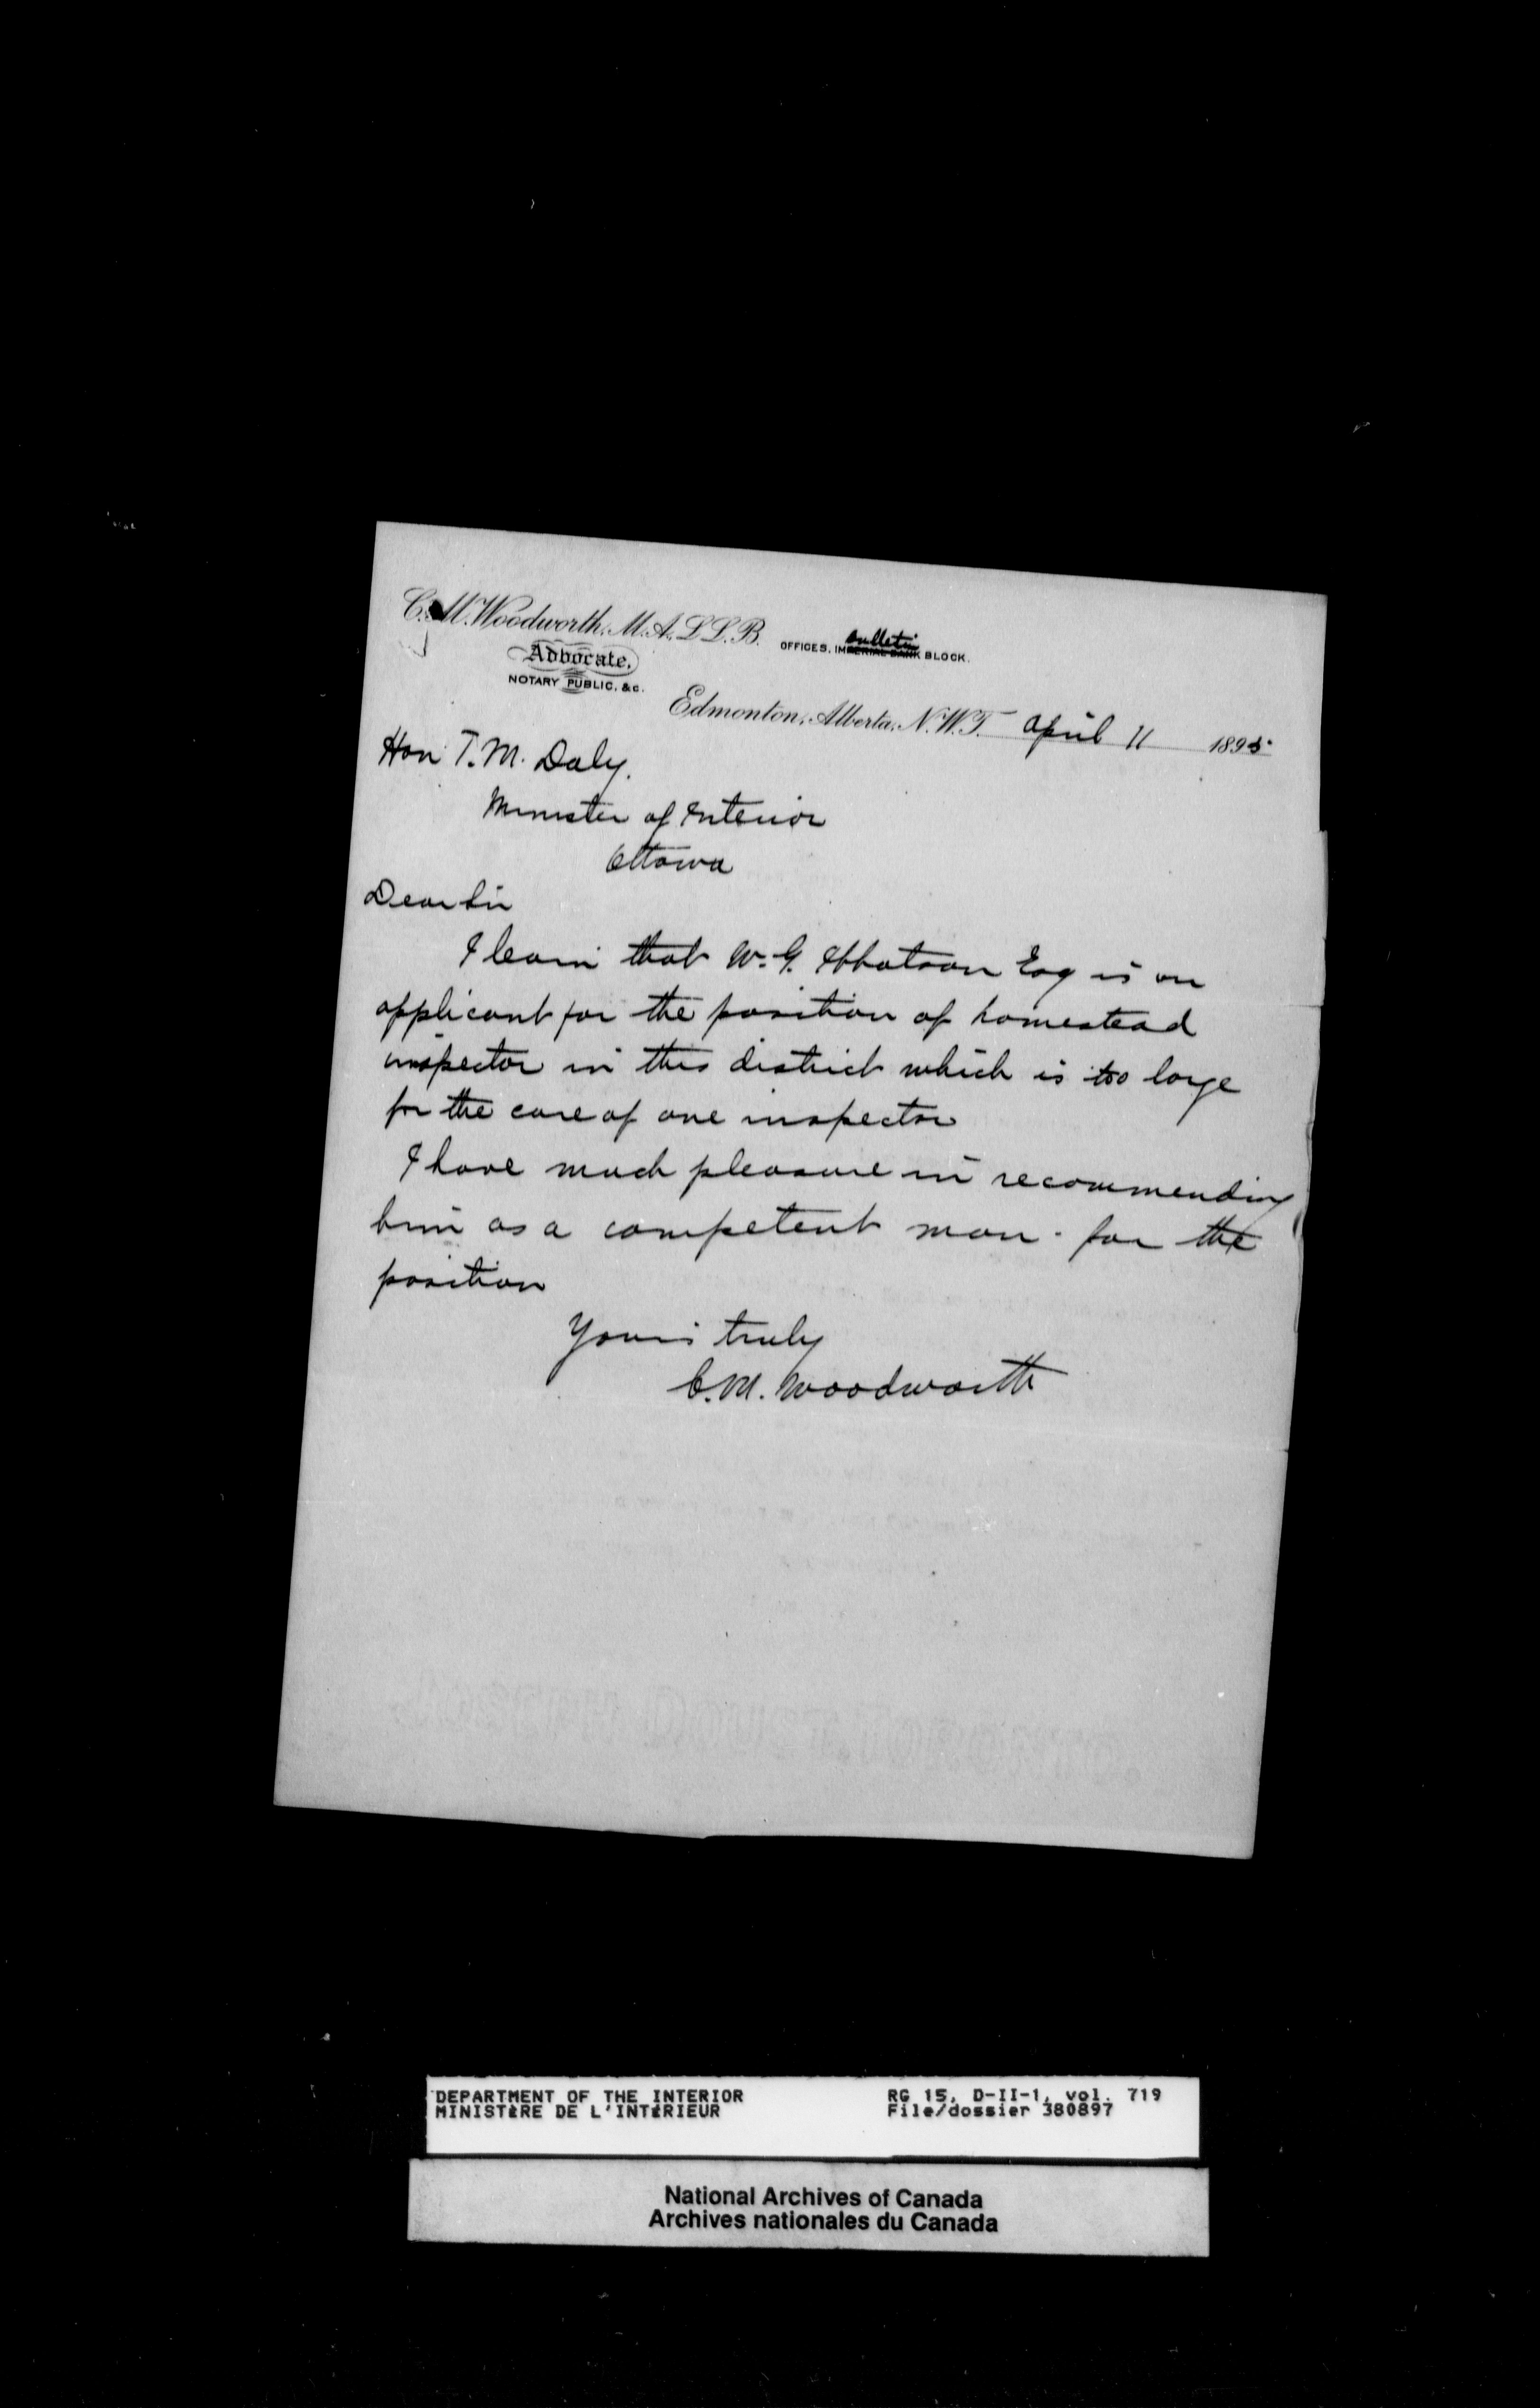 C. M. Woodworth, M.A., L.L.B.
Advocate,
NOTARY PUBLIC, &c.
OFFICES, IMPERIAL BANK Bulletin BLOCK.
Edmonton, Alberta, N.W.T. April 11 1895
Hon T. M. Daly.
Minister of Interior
Ottawa
Dear Sir
I learn that W. G. Ibbotson Esq is an
applicant for the position of homestead
inspector in this district which is too large
for the care of one inspector
I have much pleasure in recommending
him as a competent man for the
position
Yours truly
C. M. Woodworth
DEPARTMENT OF THE INTERIOR
MINISTÈRE DE L'INTÉRIEUR
RG 15, D-II-1, vol. 719
File/dossier 380897
National Archives of Canada
Archives nationales du Canada